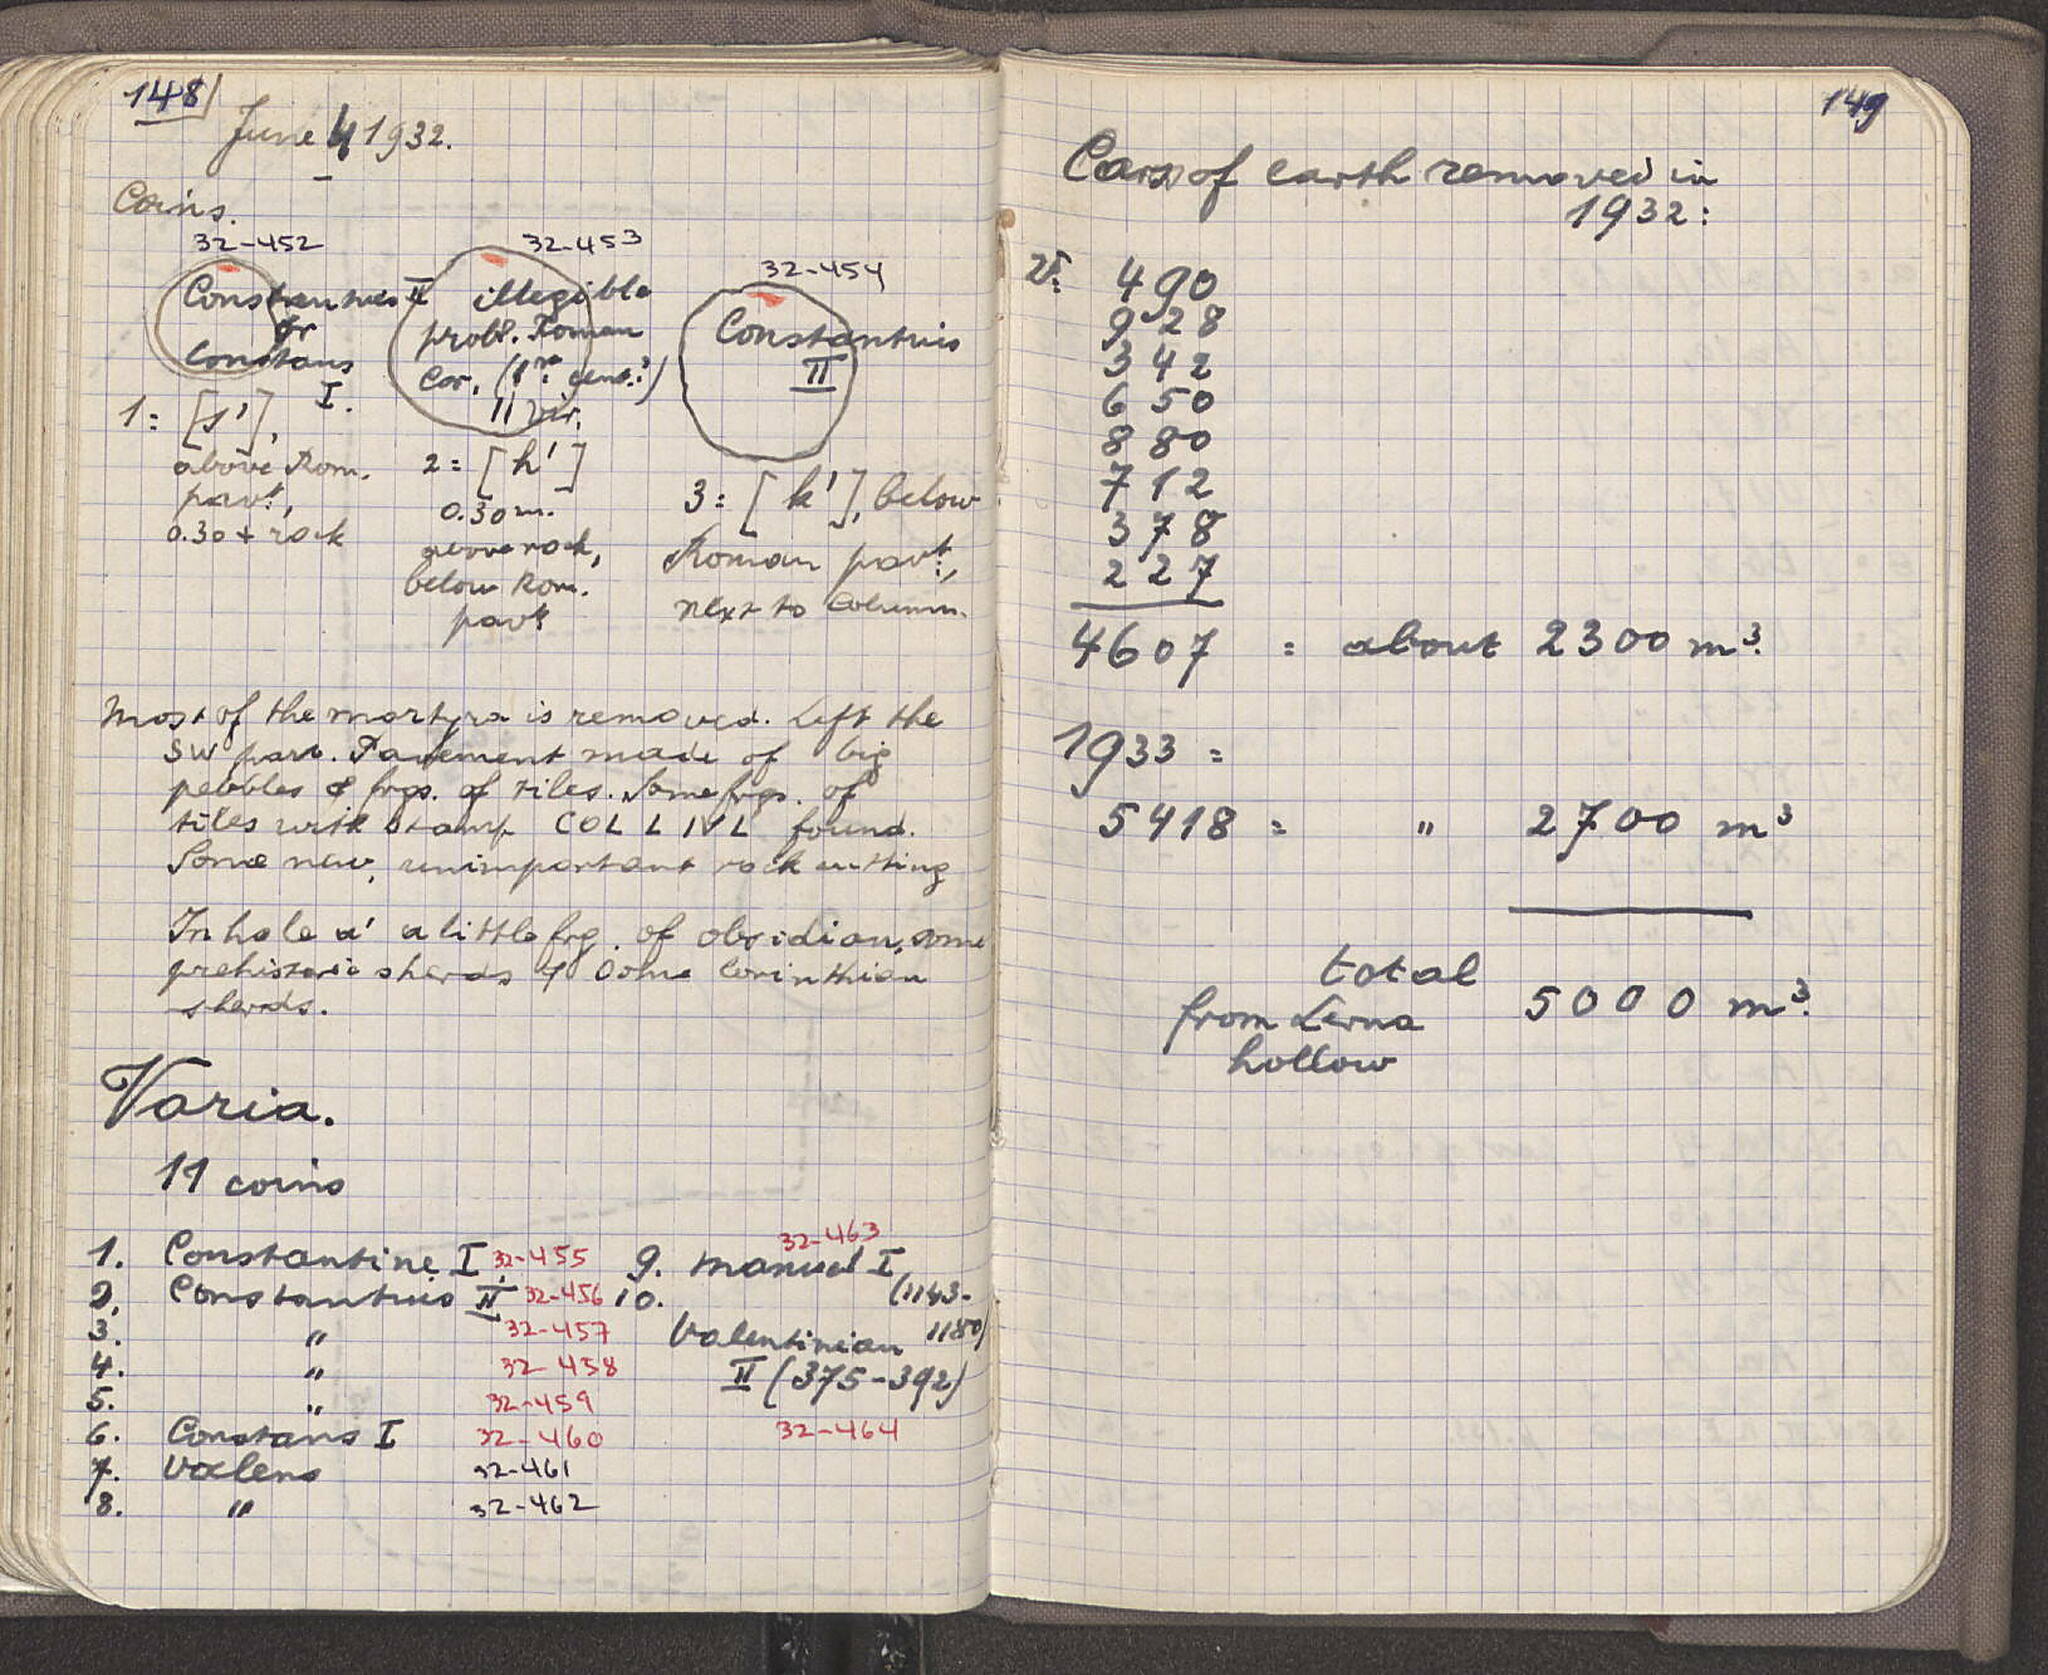 148
June 4 1932.
Coins.
32-452
Constantius II
or
Constans
I.
1 = [s'],
above Rom.
pavt.,
0.30 + rock
32-453
illegible
probl. Roman
Cor. (1st cent.?)
II vir.
2 = [h']
0.30 m.
above rock,
below Rom.
pavt
32-454
Constantius
II
3 = [k'], below
Roman pavt.,
next to Column.
Most of the martyra is removed. Left the
SW part. Pavement made of big
pebbles & frgs. of tiles. Some frgs. of
tiles with stamp COL L IVL found.
Some new, unimportant rock cutting
In hole a' a little frg. of obsidian, some
prehistoric sherds & some Corinthian
sherds.
Varia.
11 coins
1. Constantine I 32-455
2. Constantius II 32-456
3. " 32-457
4. " 32-458
5. " 32-459
6. Constans I 32-460
7. Valens 32-461
8. " 32-462
32-463
9. Manuel I
(1143-
1180)
10.
Valentinian
II (375-392)
32-464
149
Cars of earth removed in
1932:
490
928
342
650
880
712
378
227
4607 = about 2300 m³.
1933 =
5418 = " 2700 m³
total
from Lerna 5000 m³.
hollow